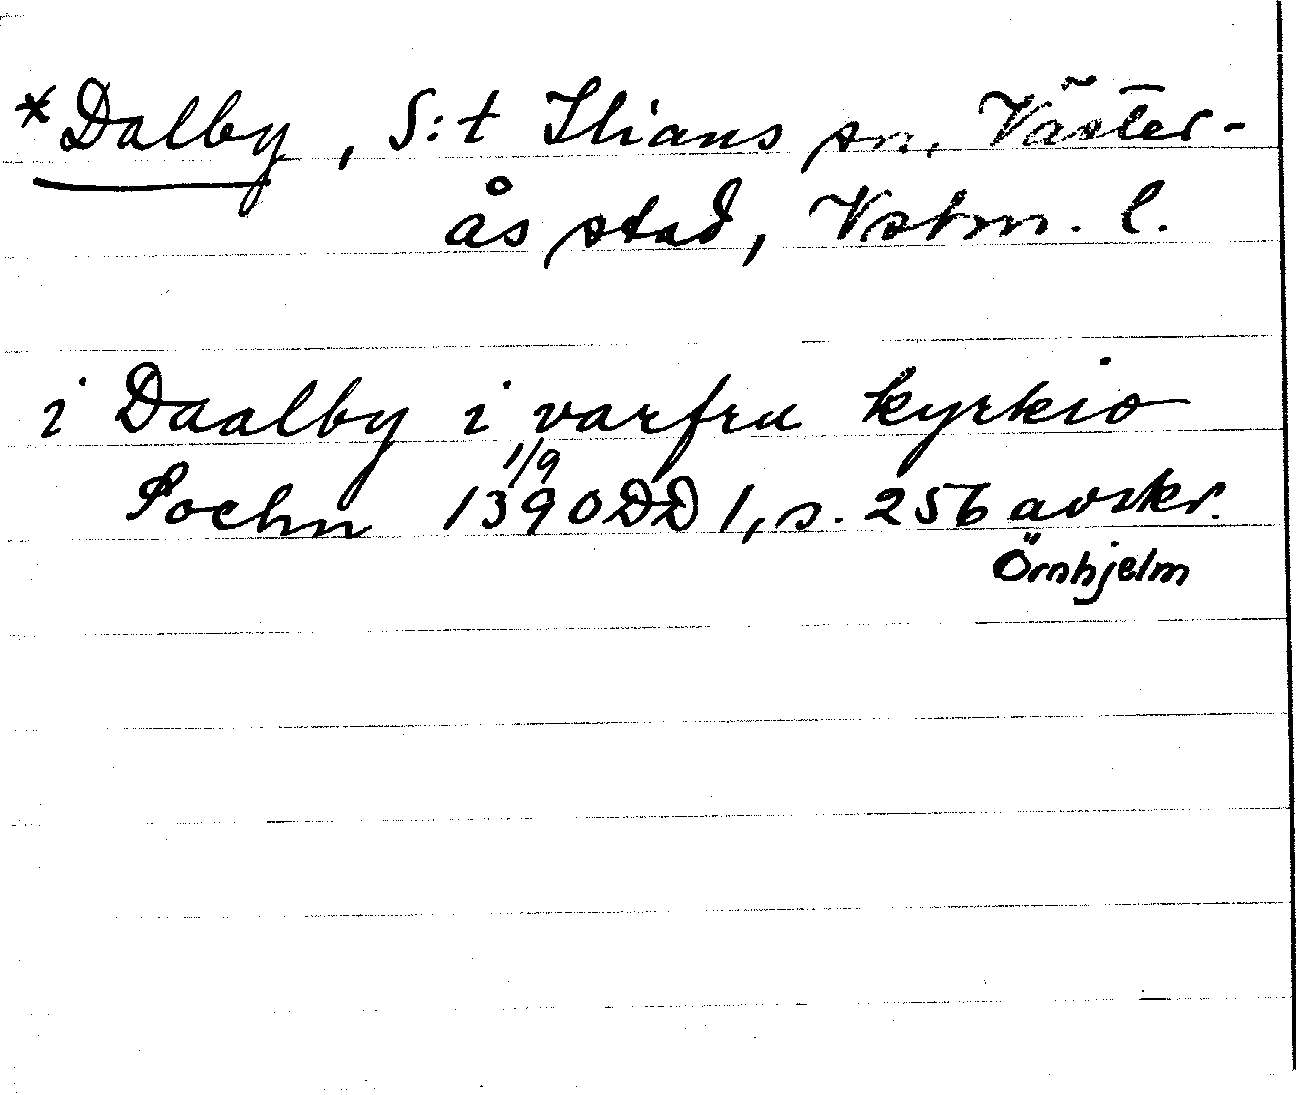 *Dalby, S:t Ilians sn, Väster-
ås stad, Vstm. l.
i Daalby i varfru kyrkio
Sochn 1390 1/9 DD 1, s. 256 avskr.
Örnhjelm